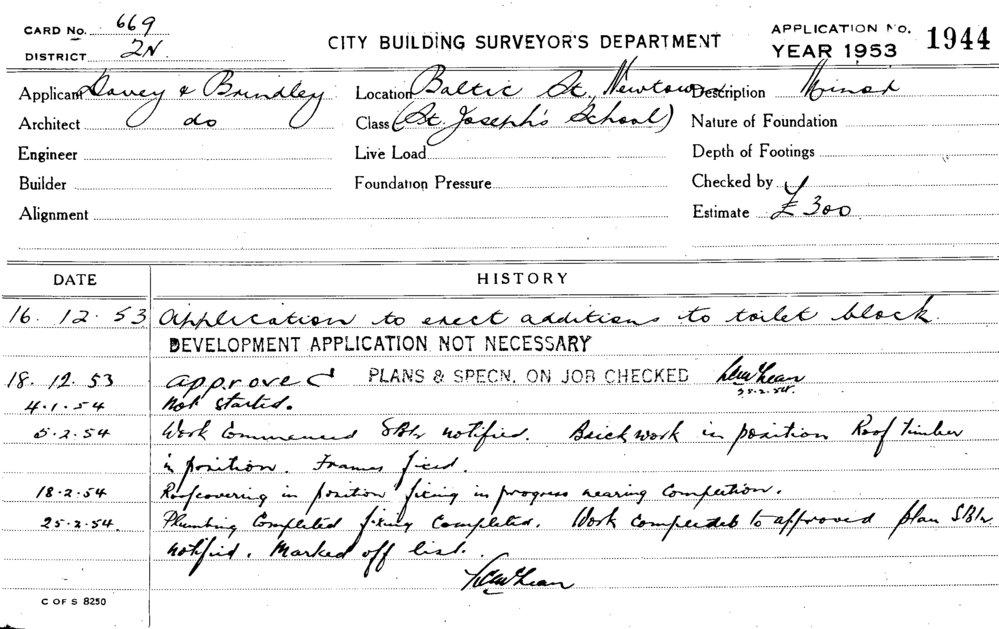 CARD No. 669
DISTRICT 2N.
CITY BUILDING SURVEYOR'S DEPARTMENT
APPLICATION No. 1944
YEAR 1953
Applicant Davey & Brindley Location Baltic St, Newtown Description Minor
Architect do Class (St. Joseph's School) Nature of Foundation
Engineer Live Load Depth of Footings
Builder Foundation Pressure Checked by
Alignment Estimate £300
DATE HISTORY
16. 12. 53 Application to erect additions to toilet block.
DEVELOPMENT APPLICATION NOT NECESSARY
18. 12. 53 approved PLANS & SPECN. ON JOB CHECKED
25.2.54.
4.1.54 Not started.
5.2.54 Work Commenced notified. Brickwork in position Roof timber
in position. Frames fixed.
18.2.54 Roofcovering in position fixing in progress nearing completion.
25.2.54. Plumbing Completed fixing completed. Work completed to approved plan
notified. Marked off list.
C OF S 8250